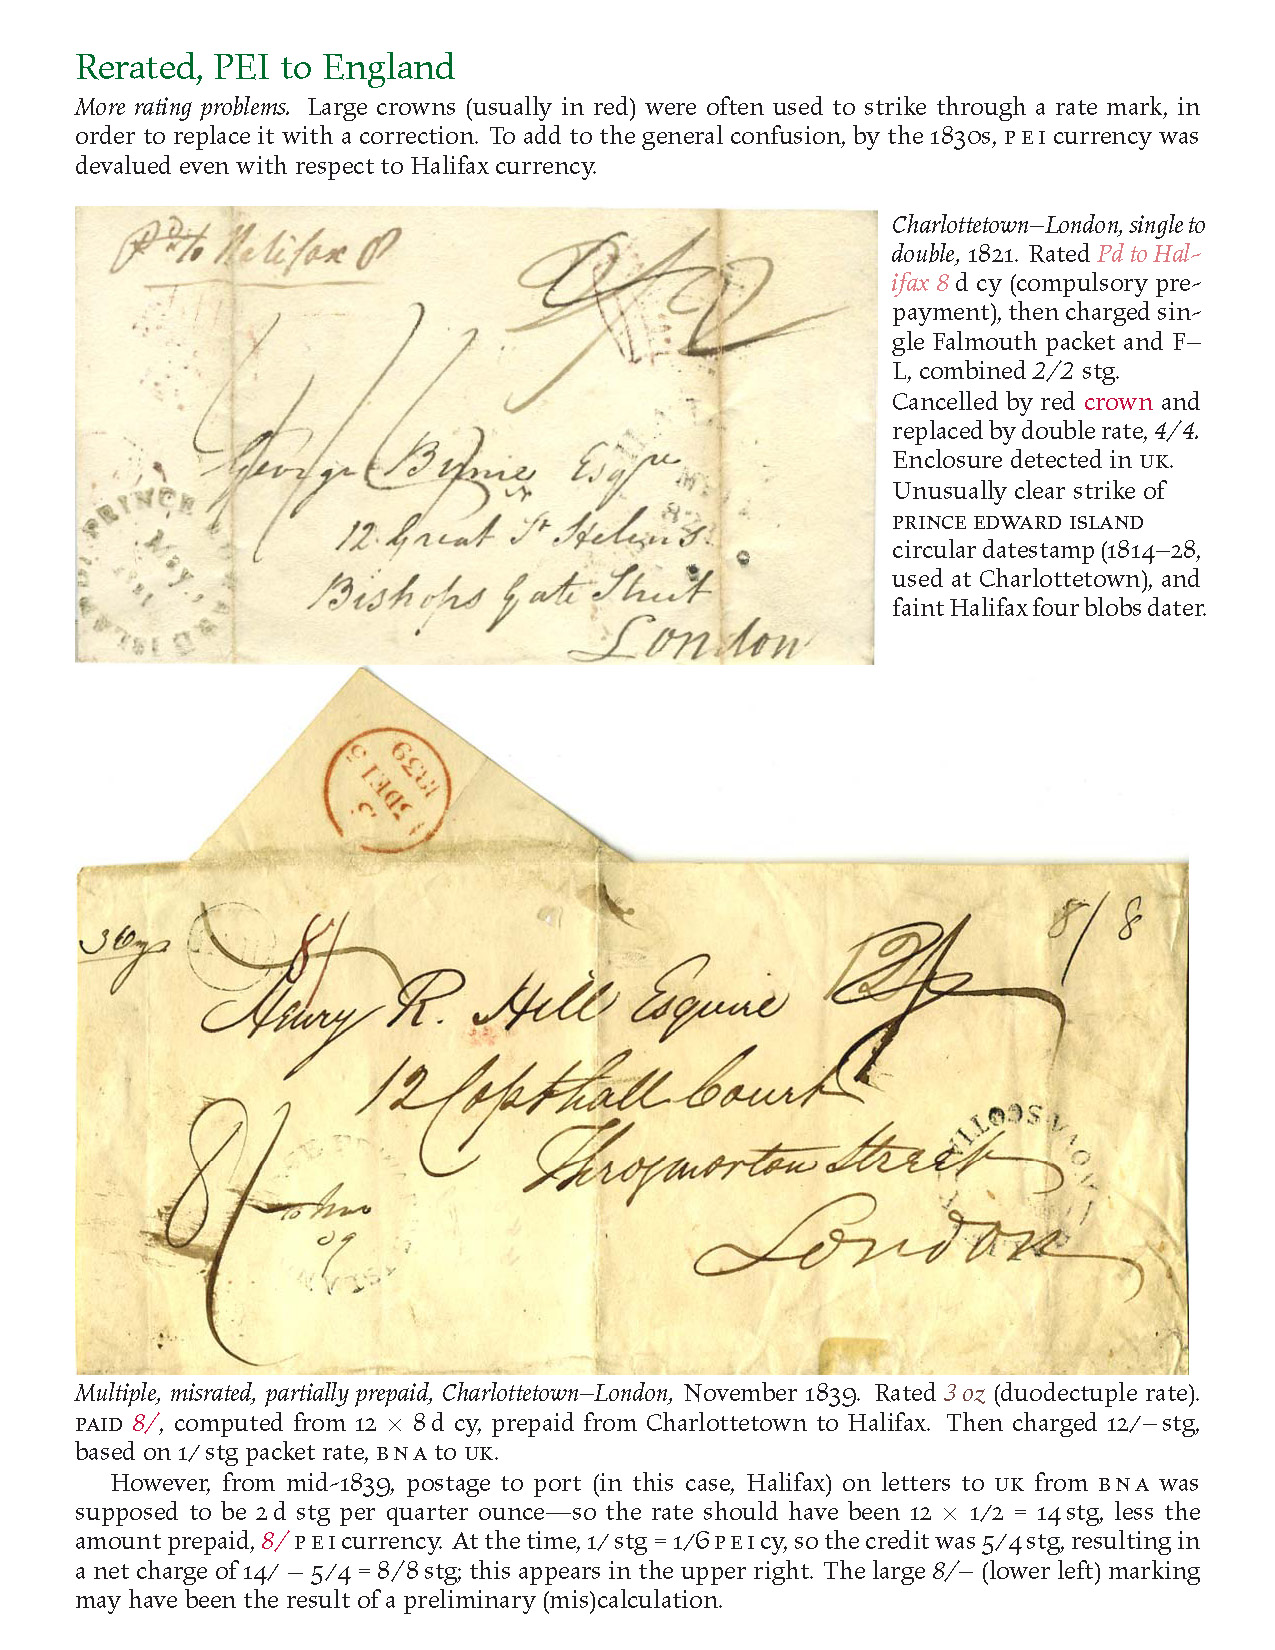 Rerated, PEI to England
More rating problems. Large crowns (usually in red) were often used to strike through a rate mark, in
order to replace it with a correction. To add to the general confusion, by the 1830s, PEI currency was
devalued even with respect to Halifax currency.
Pd to Halifax 8
2/2
George Esqre
12 Great St Helens
Bishops Gate Street
London
PRINCE
May
Charlottetown–London, single to
double, 1821. Rated Pd to Hal-
ifax 8 d cy (compulsory pre-
payment), then charged sin-
gle Falmouth packet and F–
L, combined 2/2 stg.
Cancelled by red crown and
replaced by double rate, 4/4.
Enclosure detected in UK.
Unusually clear strike of
PRINCE EDWARD ISLAND
circular datestamp (1814–28,
used at Charlottetown), and
faint Halifax four blobs dater.
1839
3 oz
8/
8/8
Henry R. Hill Esquire
12 Copthall Court
Throgmorton Street
London
8/
NOVA SCOTIA
Multiple, misrated, partially prepaid, Charlottetown–London, November 1839. Rated 3 oz (duodectuple rate).
PAID 8/, computed from 12 × 8 d cy, prepaid from Charlottetown to Halifax. Then charged 12/– stg,
based on 1/ stg packet rate, BNA to UK.
However, from mid-1839, postage to port (in this case, Halifax) on letters to UK from BNA was
supposed to be 2 d stg per quarter ounce—so the rate should have been 12 × 1/2 = 14 stg, less the
amount prepaid, 8/ PEI currency. At the time, 1/ stg = 1/6 PEI cy, so the credit was 5/4 stg, resulting in
a net charge of 14/ – 5/4 = 8/8 stg; this appears in the upper right. The large 8/– (lower left) marking
may have been the result of a preliminary (mis)calculation.